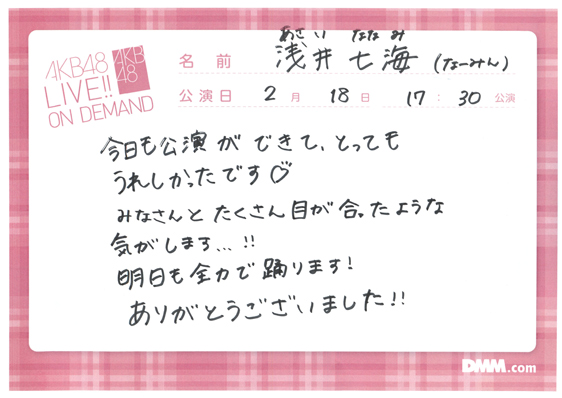 あさい ななみ
AKB48 LIVE!! ON DEMAND
AKB48
名前 浅井七海 (なーみん)
公演日 2月 18日 17:30 公演
今日も公演ができて、とっても
うれしかったです♡
みなさんとたくさん目が合ったような
気がします...!!
明日も全力で踊ります!
ありがとうございました!!
DMM.com